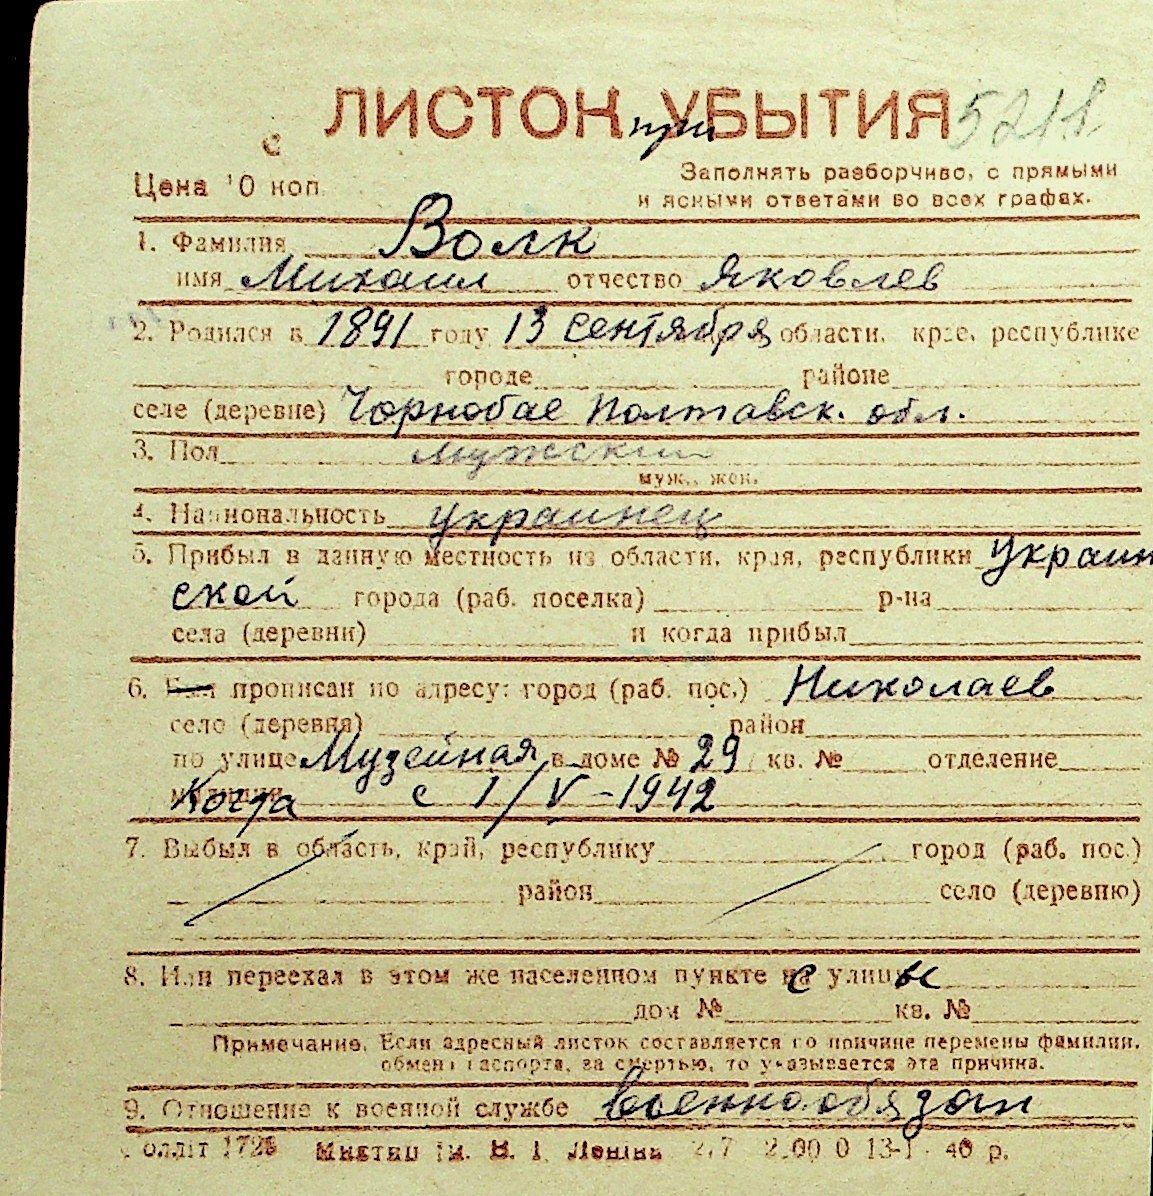 ЛИСТОК при УБЫТИЯ 5211
Цена 10 коп.
Заполнять разборчиво, с прямыми
и ясными ответами во всех графах.
1. Фамилия Волк
имя Михаил отчество Яковлев
2. Родился в 1891 году 13 сентября области, крае, республике
городе районе
селе (деревне) Чорнобае Полтавск. обл.
3. Пол мужский
муж., жен.
4. Национальность украинец
5. Прибыл в данную местность из области, края, республики украин
ской города (раб. поселка) р-на
села (деревни) и когда прибыл
6. Был прописан по адресу: город (раб. пос.) Николаев
село (деревня) район
по улице Музейная в доме № 29 кв. № отделение
Когда с 1/V-1942
7. Выбыл в область, край, республику город (раб. пос.)
район село (деревню)
8. Или переехал в этом же населенном пункте с улицы
дом № кв. №
Примечание. Если адресный листок составляется по причине перемены фамилии,
обмена паспорта, за смертью, то указывается эта причина.
9. Отношение к военной службе Военнообязан
40 р.